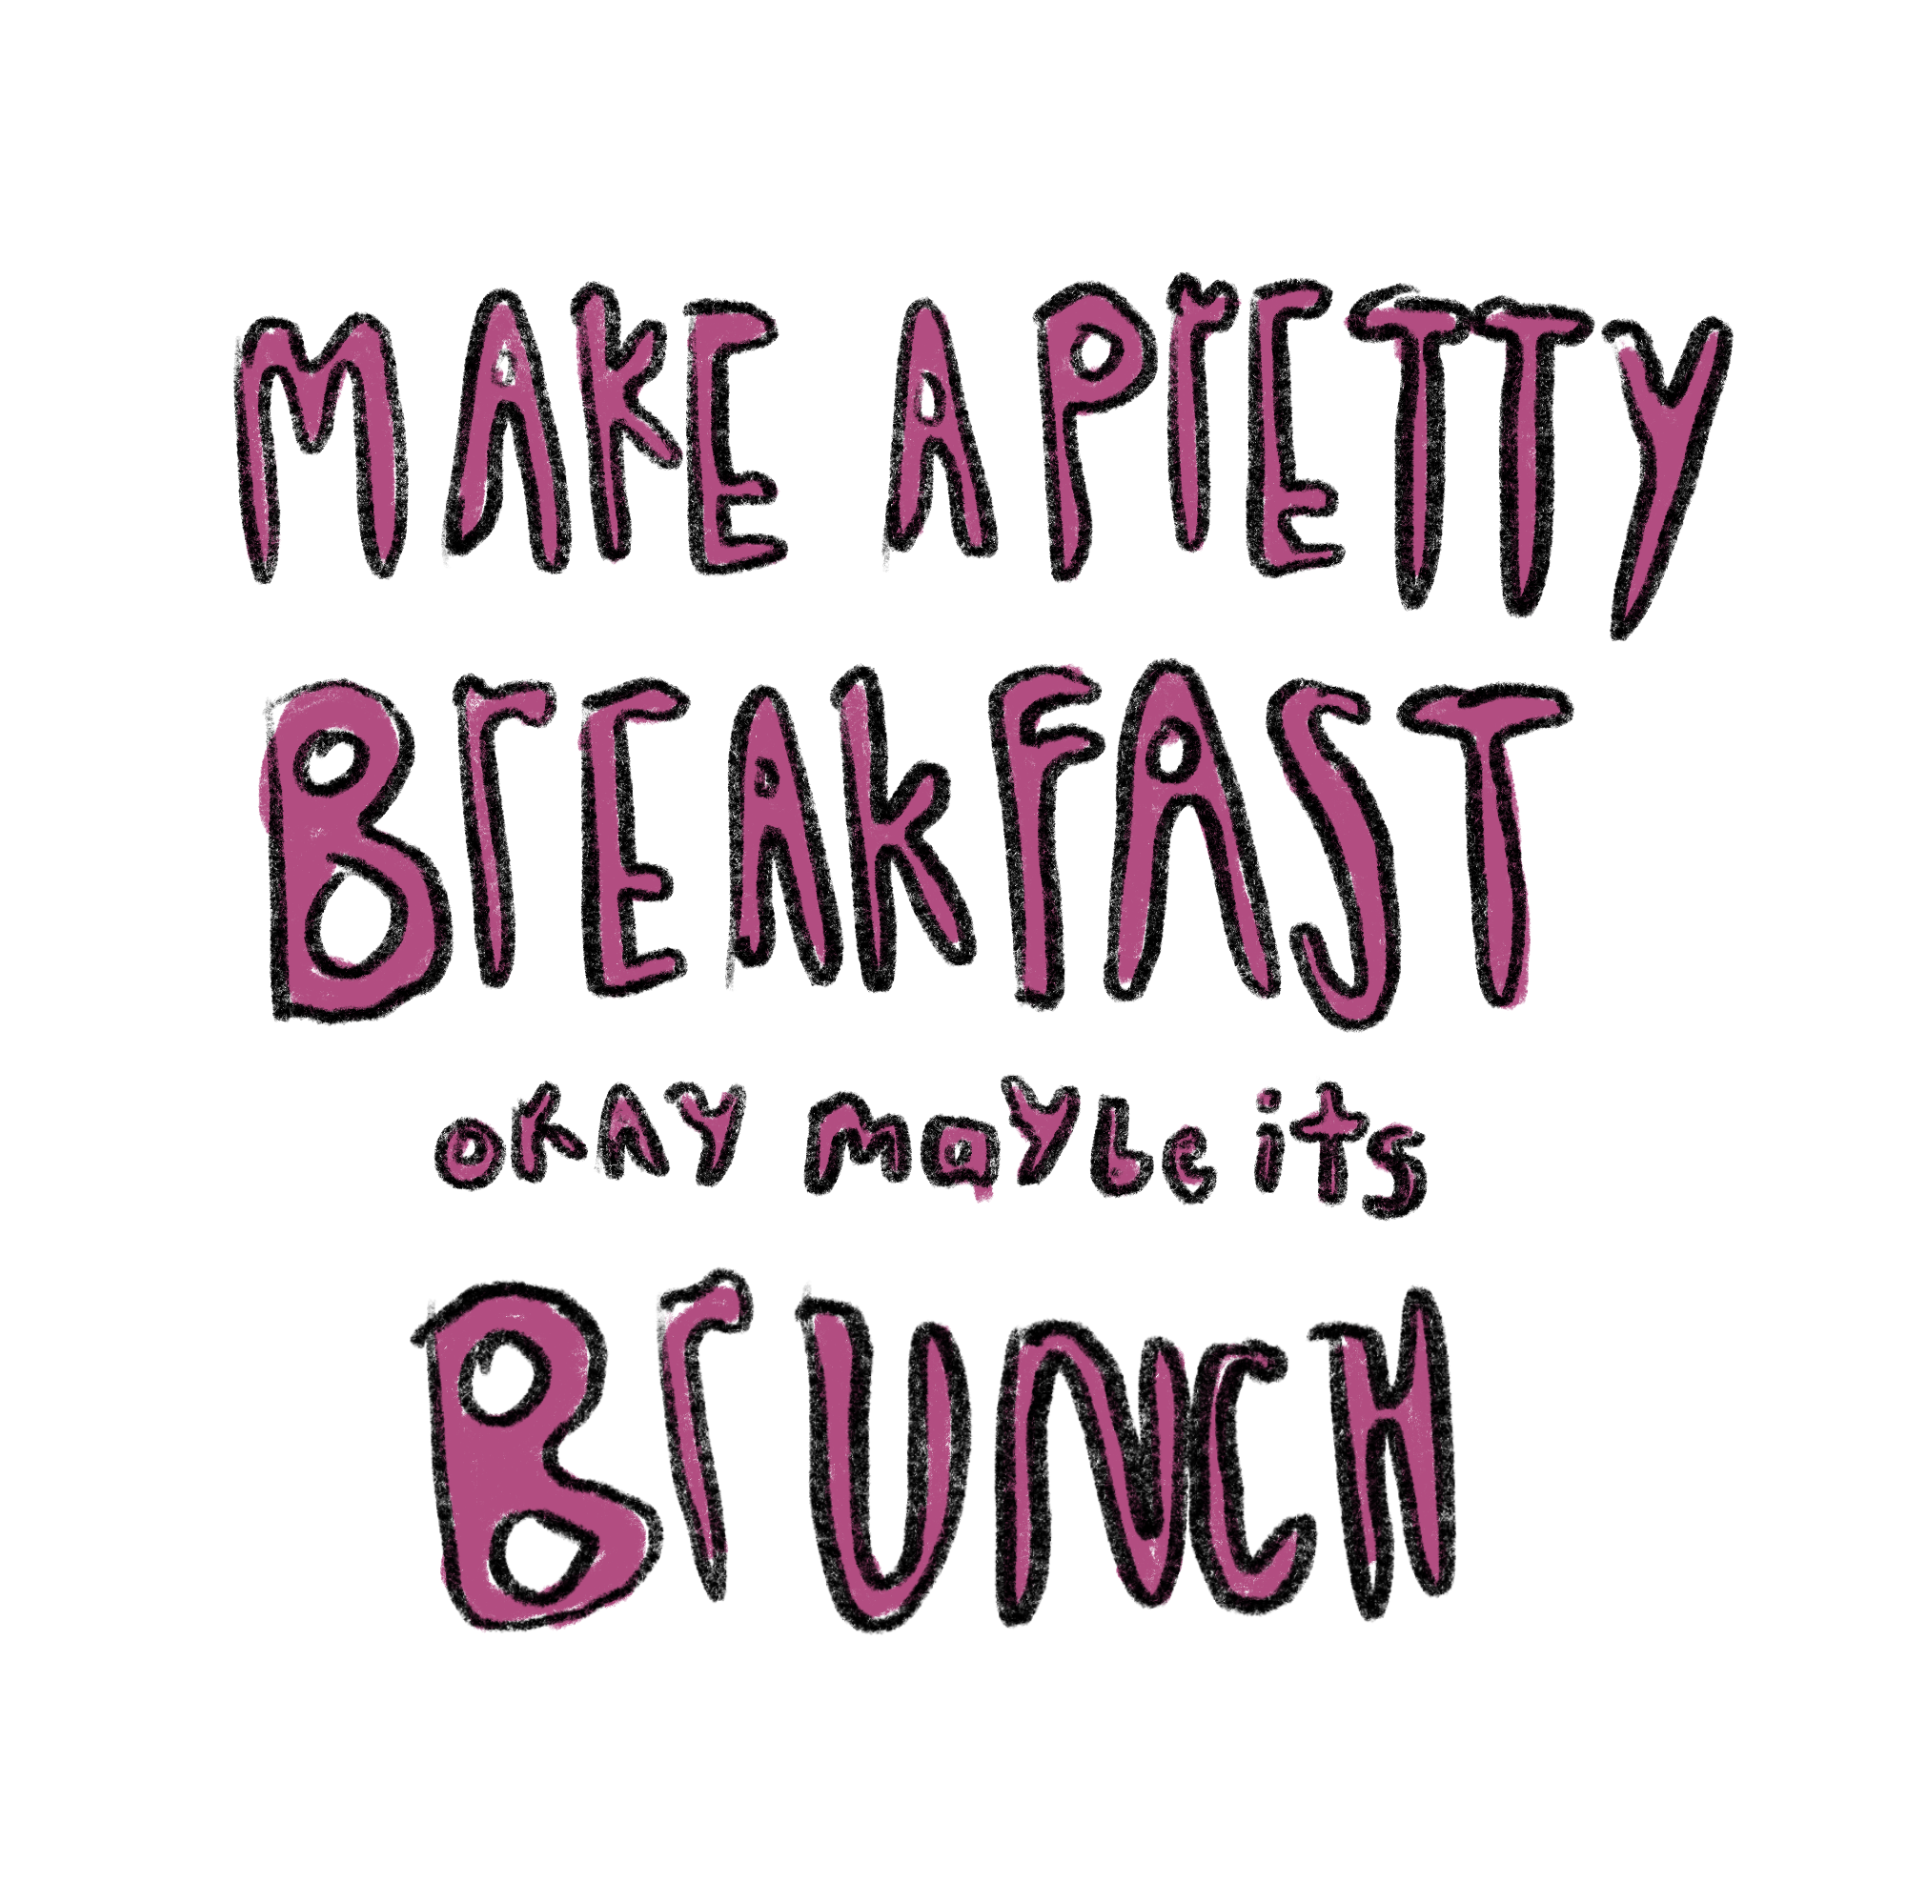 MAKE A PrETTY
BrEAkFAST
OKAY maybe its
BrUNCH